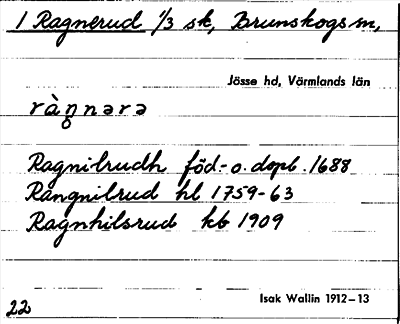 1 Ragnerud 1/3 sk, Brunskogs m,
Jösse hd, Värmlands län
ràŋ̥nərə
Ragnilrudh föd.- o. dopb. 1688
Rangnilrud hl 1759-63
Ragnhilsrud kb 1909
Isak Wallin 1912-13
22